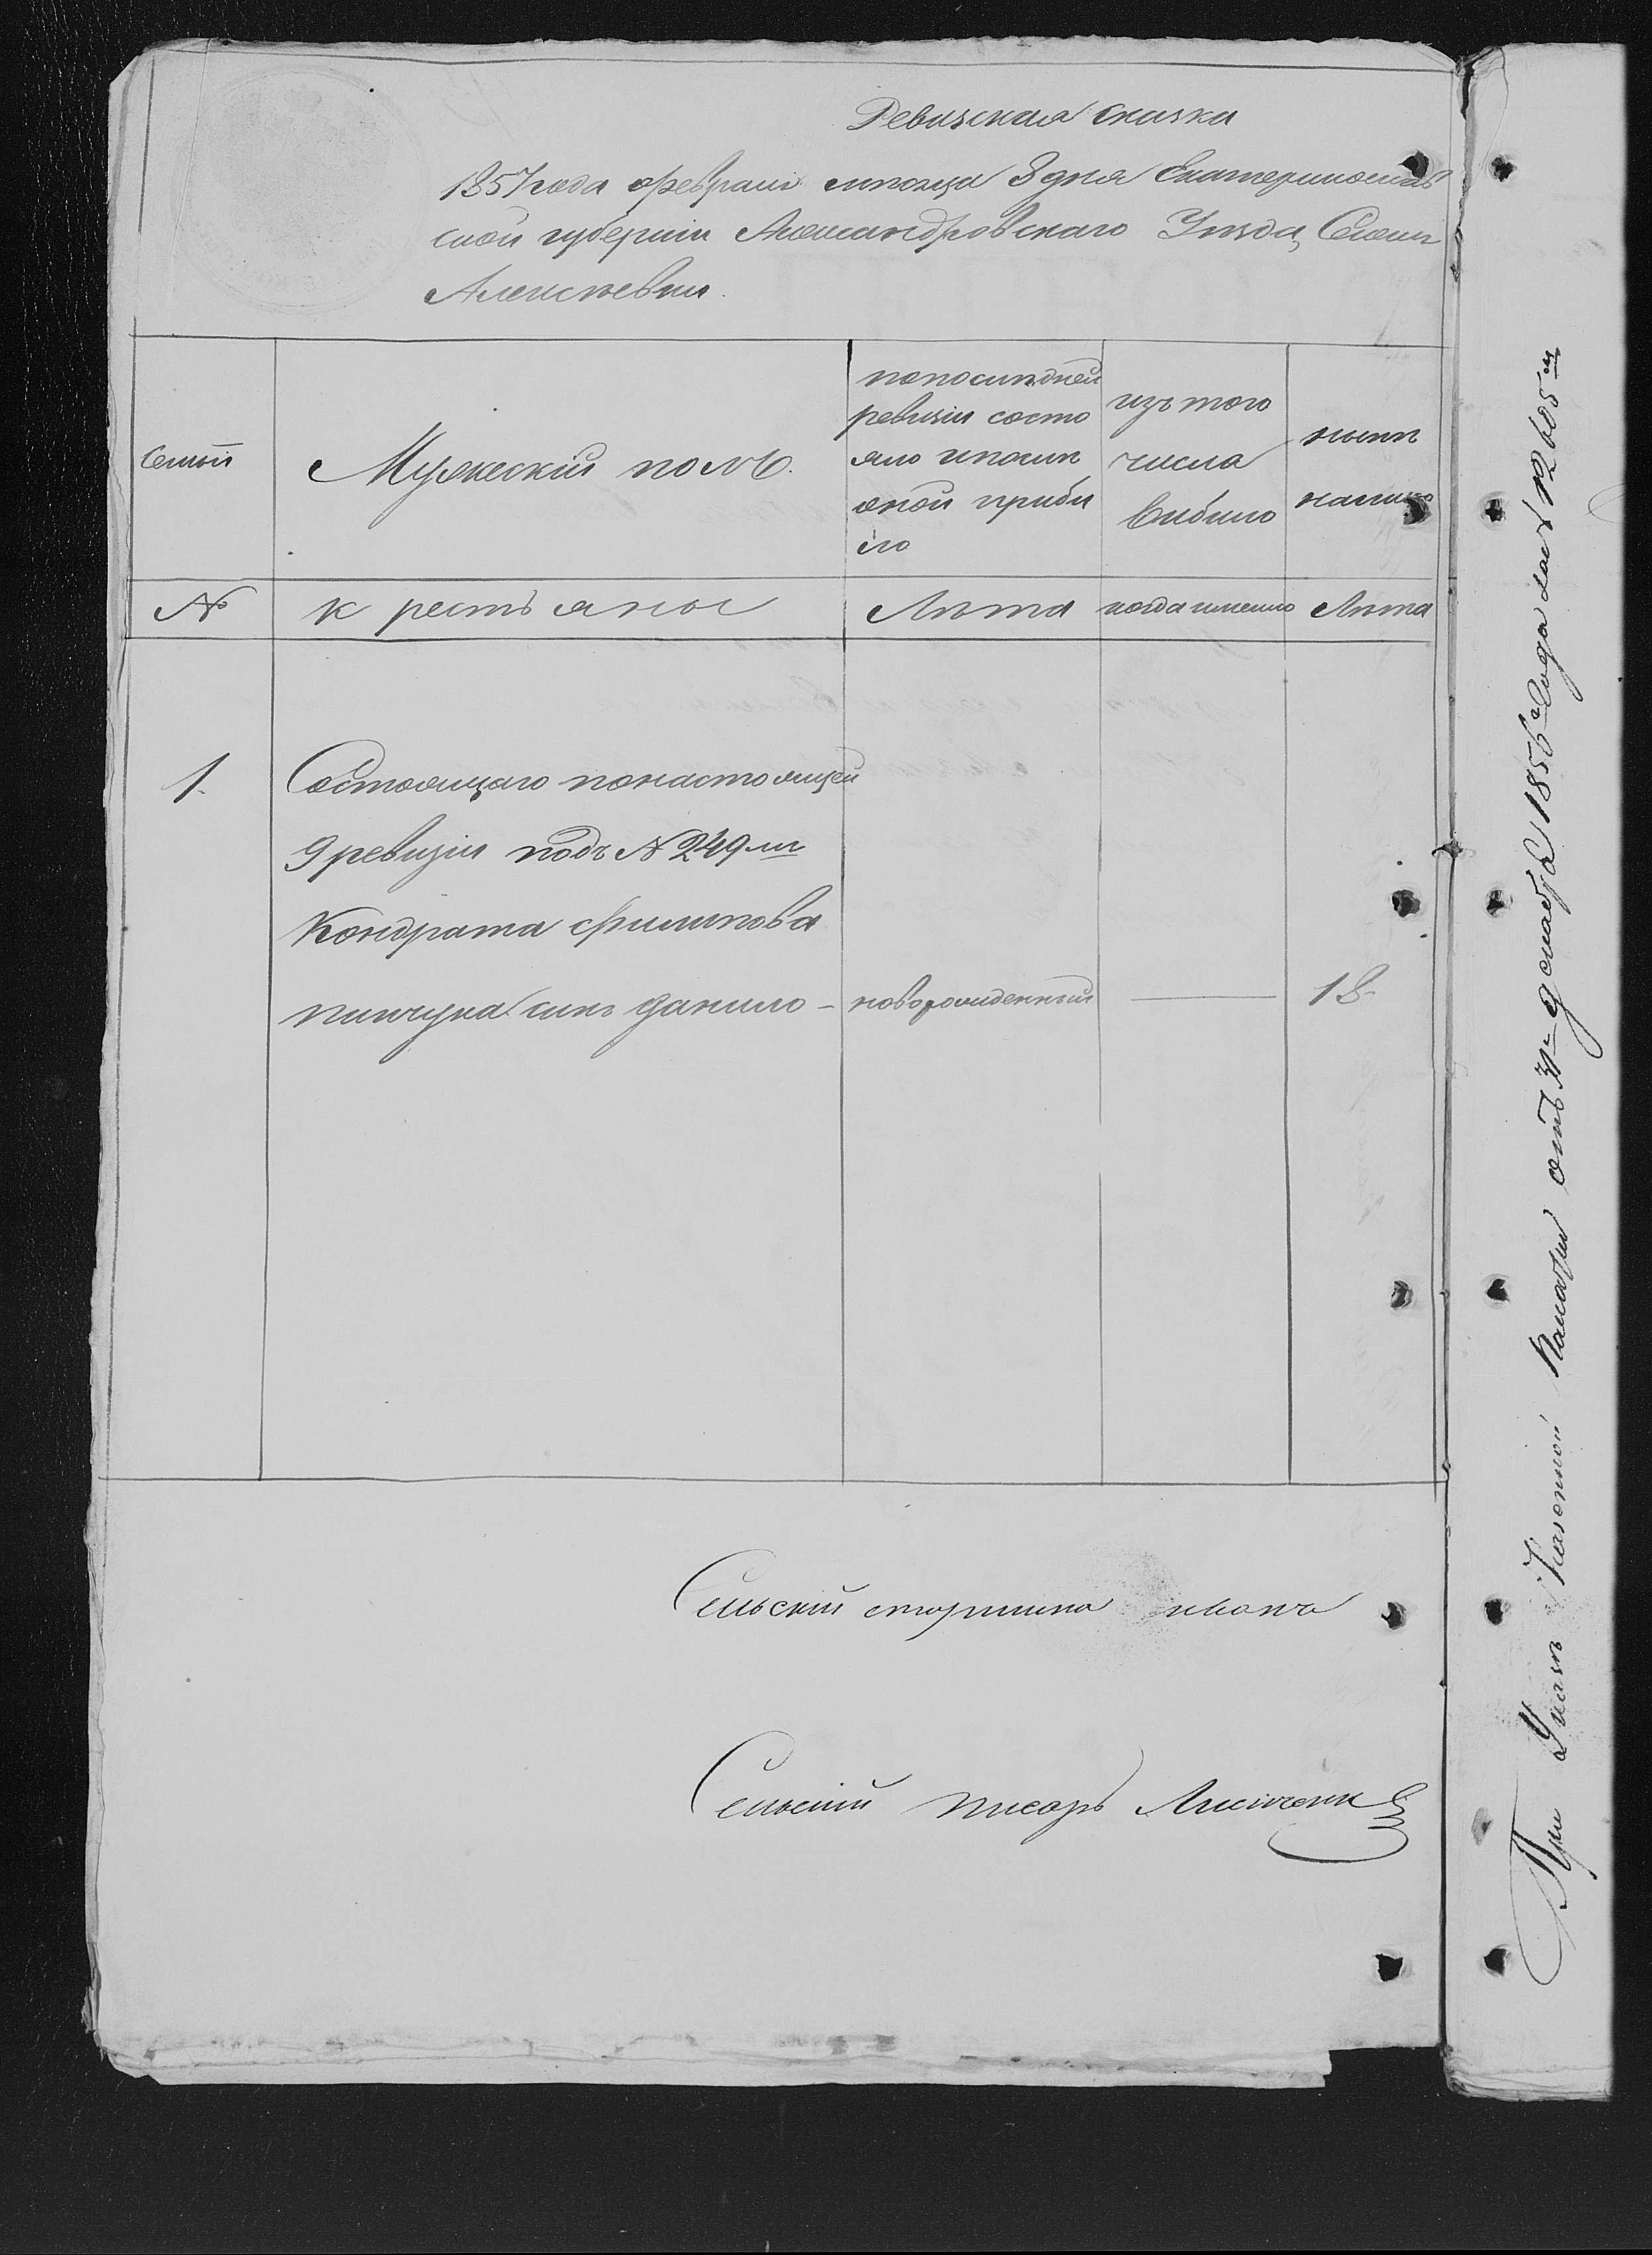 Ревизская сказка
1857 года февраля мѣсяца 3 дня Екатеринослав
ской губерніи Александровскаго Уѣзда, Селен
Алексѣевки.
Семьи
Мужескій полъ.
попослѣдней
ревизіи состо
яло ипосл
оной прибы
ло
изъ того
числа
выбыло
нынѣ
налицо
№
крестьяне
Лѣта
когда именно
Лѣта
1.
Состоящаго понастоящей
9 ревизіи подъ № 249 м
Кондрата Филипова
сынъ Данило – новорожденный — 18
Сельскій старшина
Сельскій писарь
При Указѣ Казенной Палаты отъ 31го декабря 1856го года за № 12605м